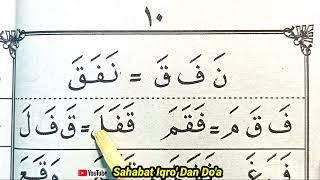 ١٠
نَ فَ قَ = نَفَقَ
فَ قَ مَ = فَقَمَ قَ فَ لَ = قَفَلَ
YouTube Sahabat Iqro' Dan Do'a